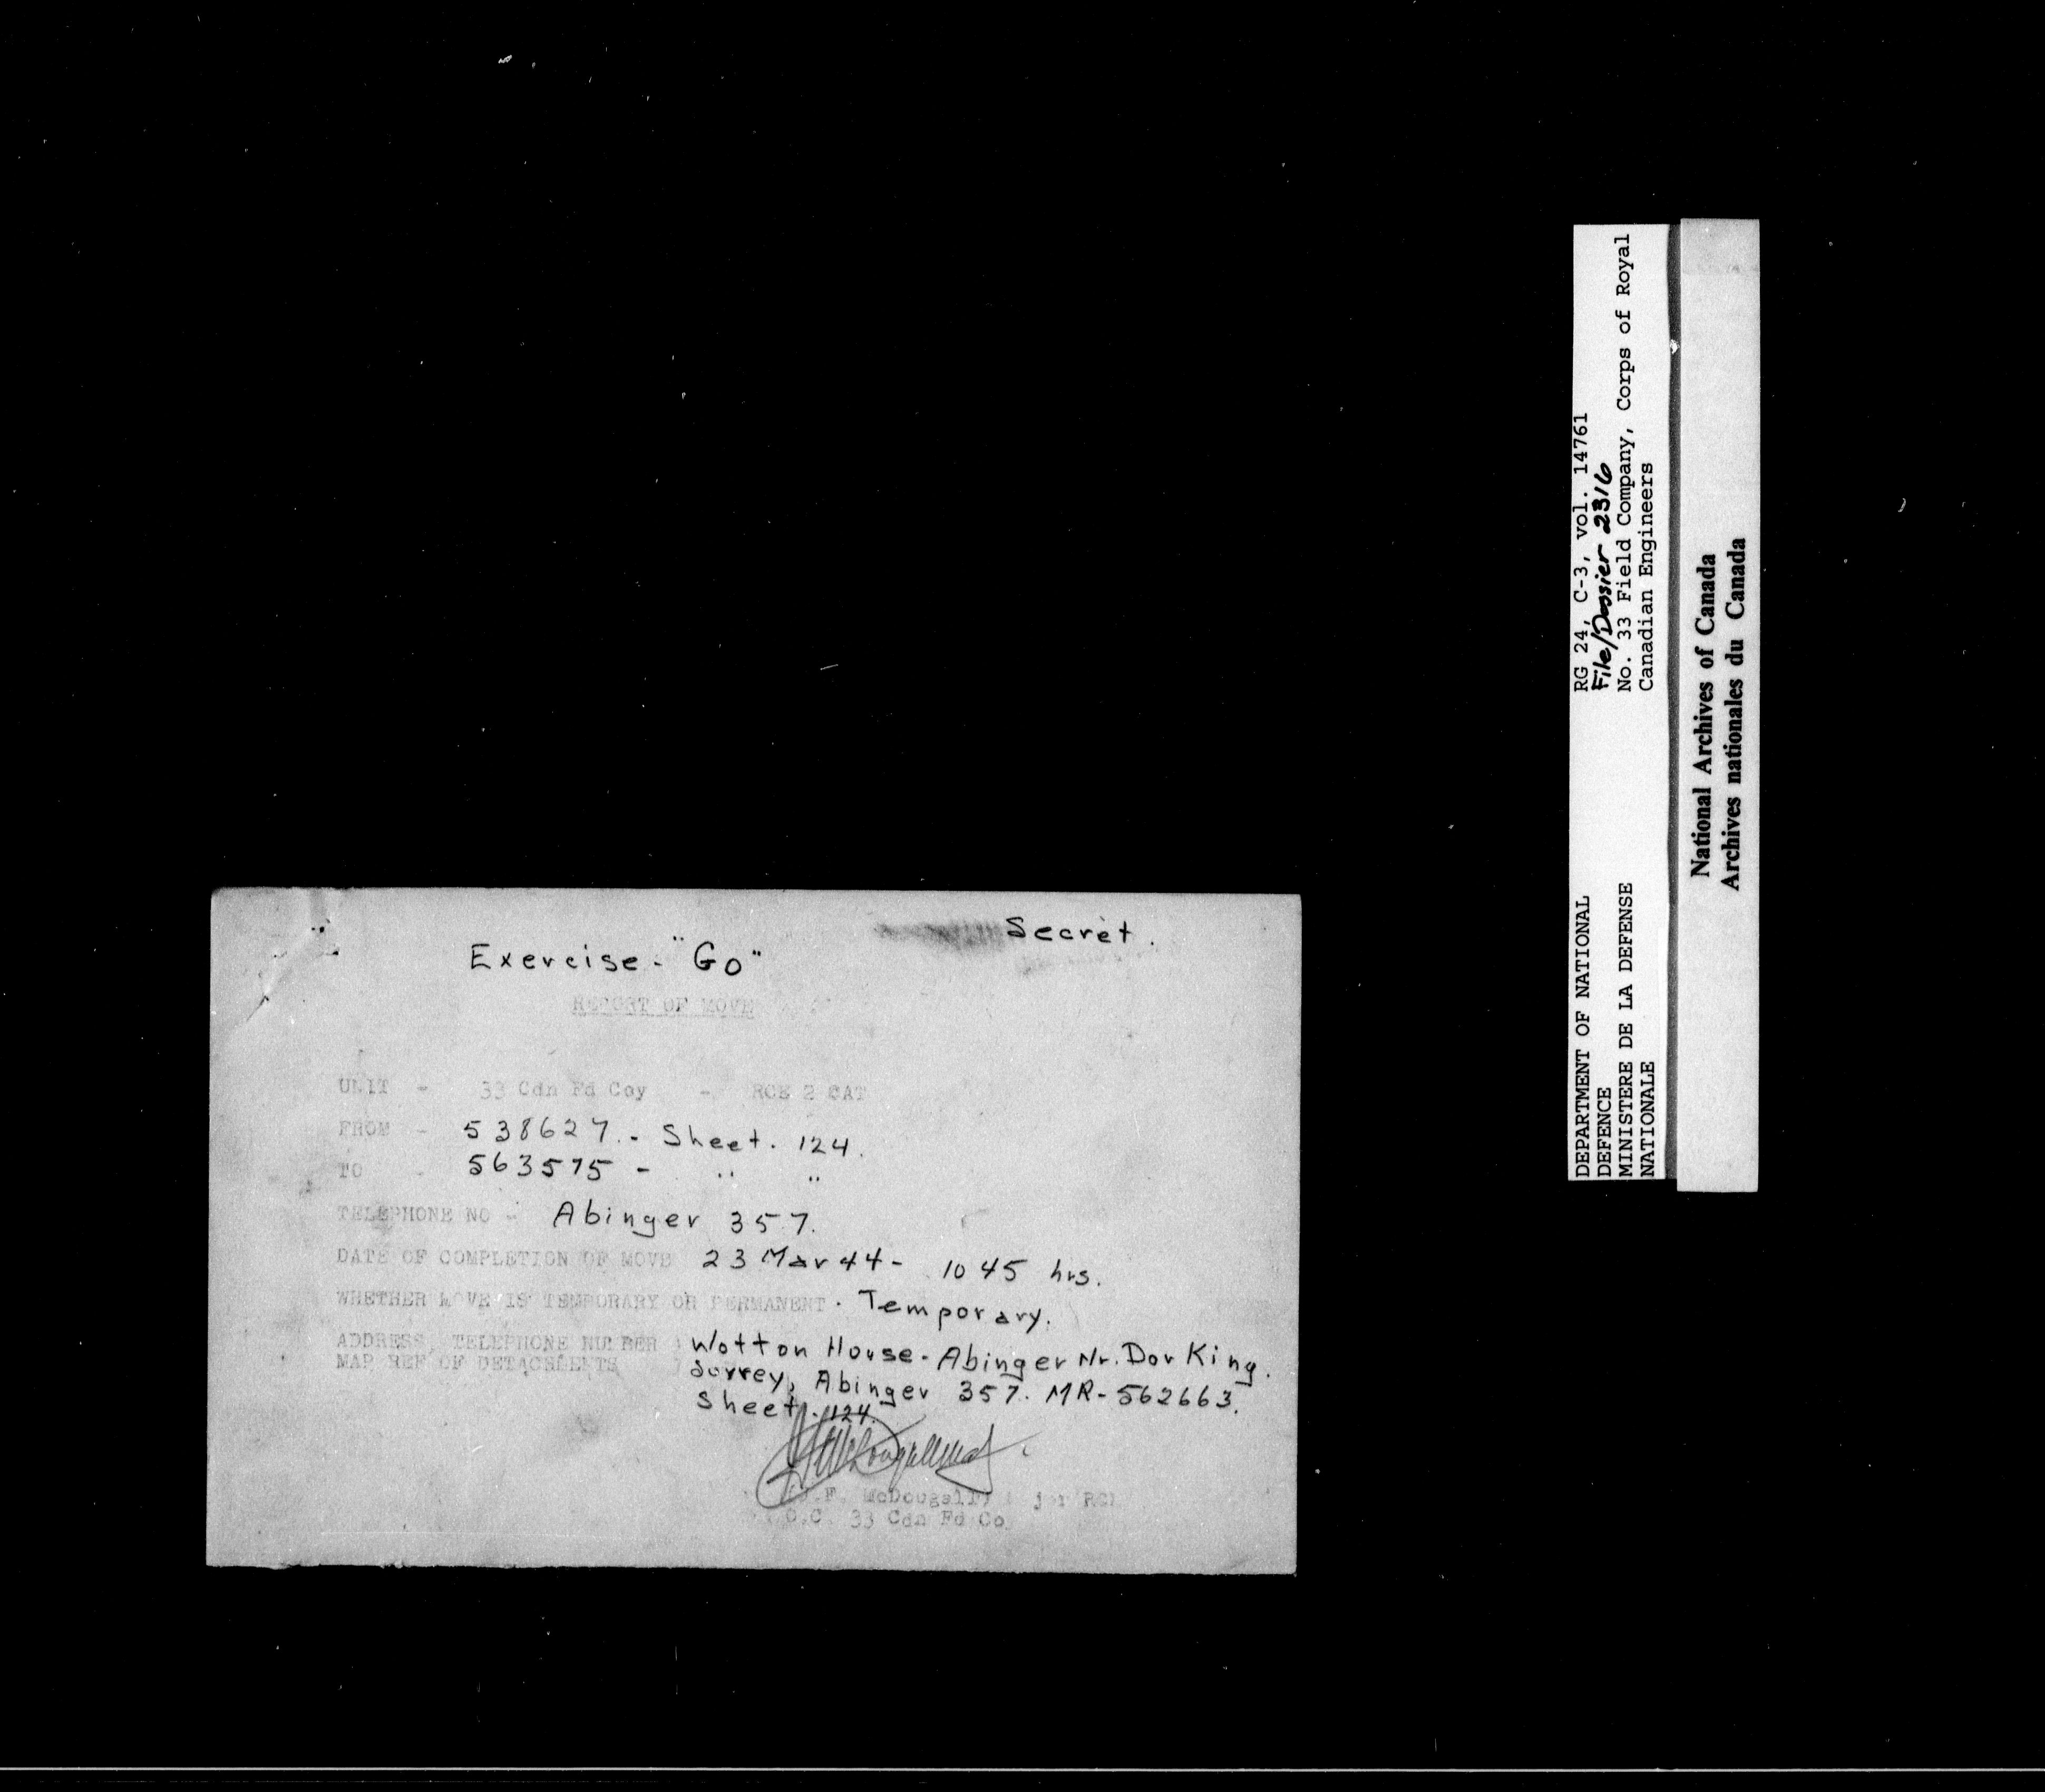 Secret.
Exercise - "Go"
REPORT OF MOVE
UNIT - 33 Cdn Fd Coy - RCE 2 CAT
FROM - 538627. - Sheet. 124.
TO - 563575 - " "
TELEPHONE NO - Abinger 357.
DATE OF COMPLETION OF MOVE 23 Mar 44 - 1045 hrs.
WHETHER MOVE IS TEMPORARY OR PERMANENT. Temporary.
ADDRESS, TELEPHONE NUMBER Wotton House - Abinger Nr. Dor King.
MAP REF OF DETACHMENTS Surrey, Abinger 357. MR - 562663.
Sheet. 124.
J.F. McDougall) RCE
O.C. 33 Cdn Fd Co
DEPARTMENT OF NATIONAL
DEFENCE
MINISTERE DE LA DEFENSE
NATIONALE
RG 24, C-3, vol. 14761
File/Dossier 2316
No. 33 Field Company, Corps of Royal
Canadian Engineers
National Archives of Canada
Archives nationales du Canada